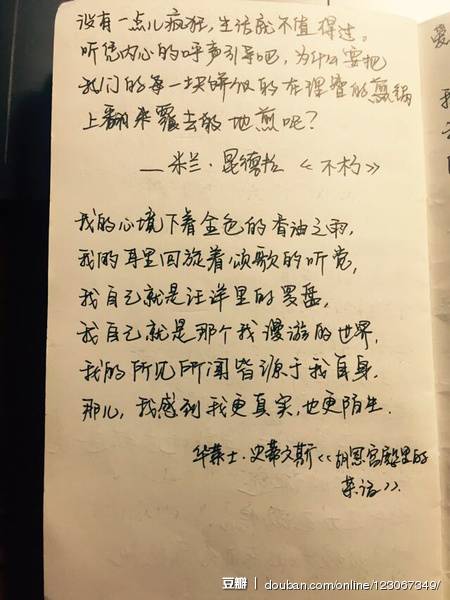 没有一点儿疯狂,生活就不值得过。
听凭内心的呼声引导吧,为什么要把
我们的每一块饼似的在理智的煎锅
上翻来覆去的地煎呢?
—米兰·昆德拉《不朽》
我的心境下着金色的香油之雨,
我的耳里回旋着颂歌的听觉,
我自己就是汪洋里的罗盘,
我自己就是那个我漫游的世界,
我的所见所闻皆源于我自身.
那儿,我感到我更真实,也更陌生.
华莱士·史蒂文斯《胡恩宫殿里的
茶话》.
爱
我
豆瓣 douban.com/online/123067349/